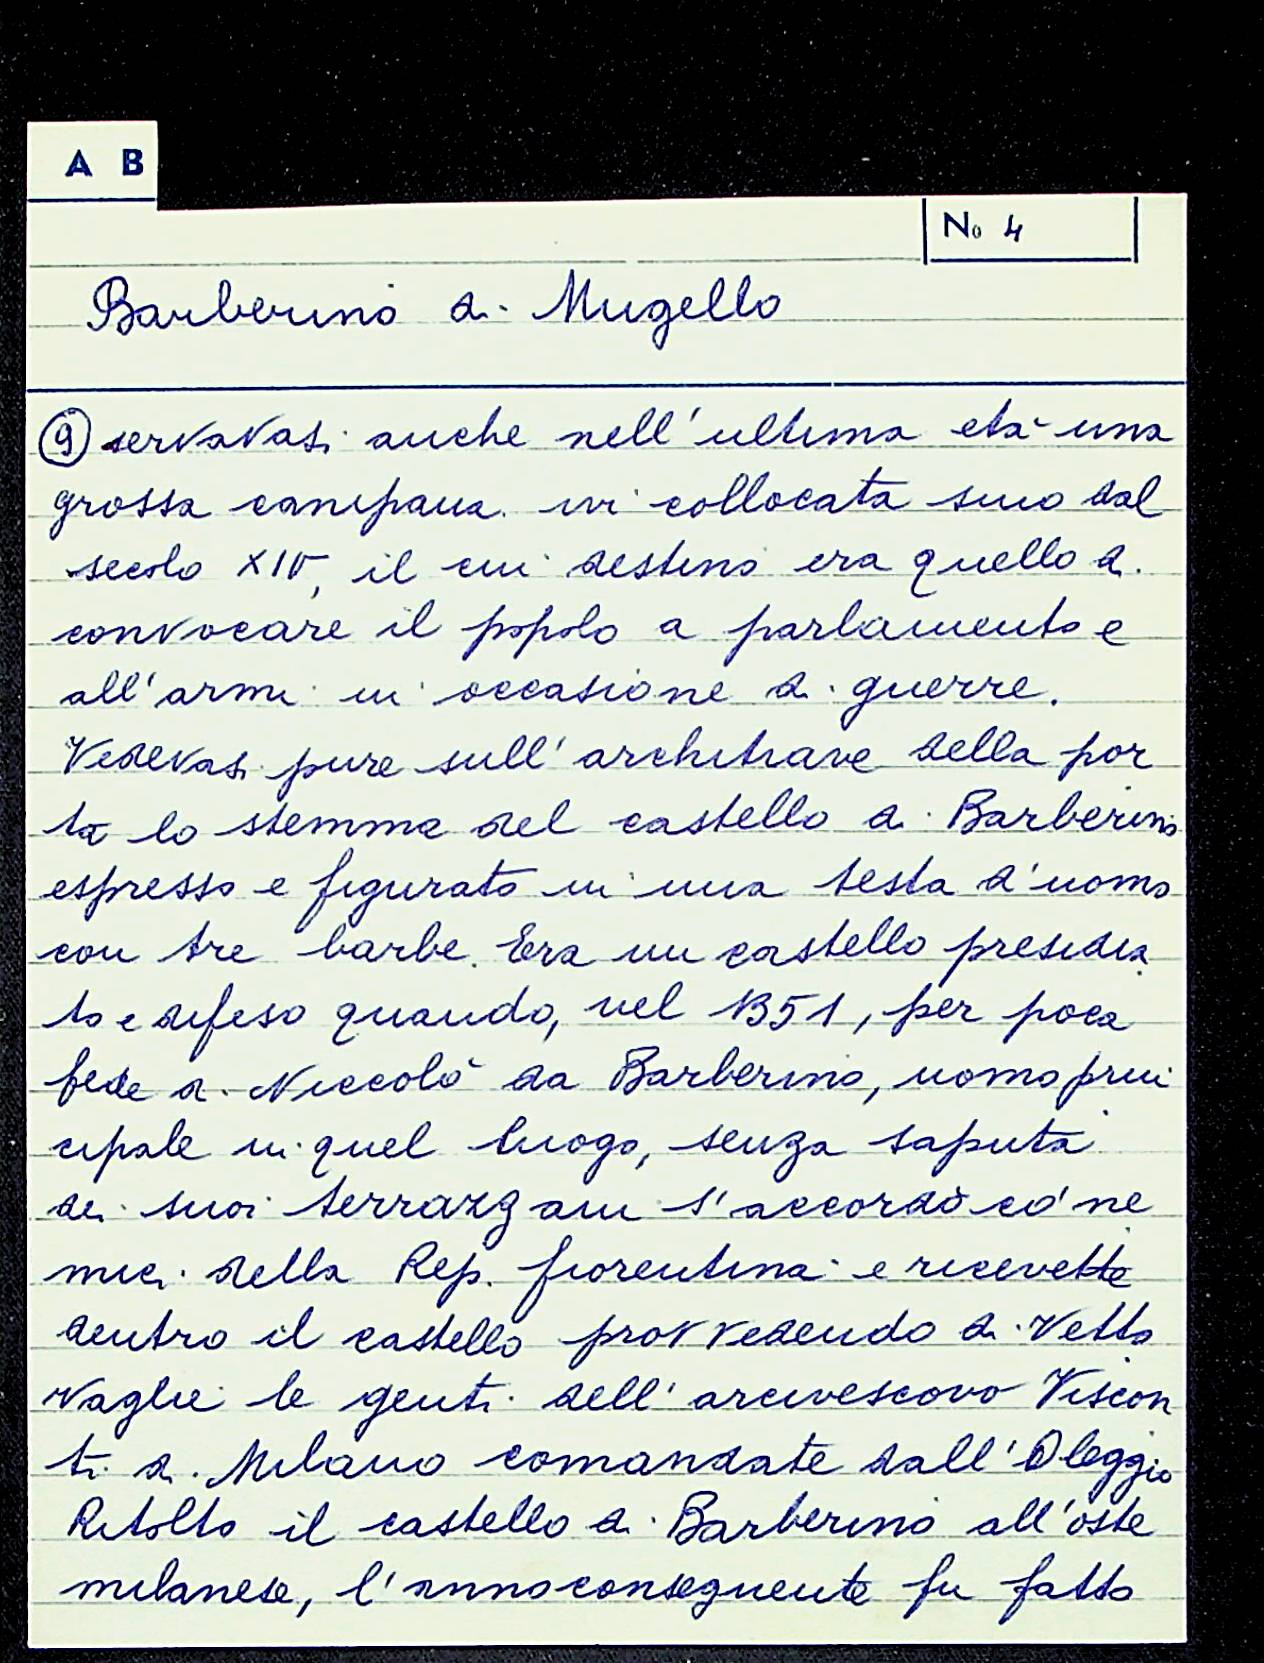 A B
No 4
Barberino di Mugello
9 servavasi anche nell'ultima età una
grossa campana ivi collocata sino dal
secolo XIV, il cui destino era quello di
convocare il popolo a parlamento e
all'armi in occasione di guerre.
Vedevasi pure sull'architrave della por
ta lo stemma del castello di Barberino
espresso e figurato in una testa d'uomo
con tre barbe. Era un castello presidia
to e difeso quando, nel 1351, per poca
fede di Niccolò da Barberino, uomo prin
cipale in quel luogo, senza saputa
dei suoi terrazzani s'accordò co' ne
mici della Rep. fiorentina e ricevette
dentro il castello provvedendo di vetto
vaglie le genti dell'arcivescovo Viscon
ti di Milano comandate dall'Oleggio
Ritolto il castello di Barberino all'oste
milanese, l'anno conseguente fu fatto